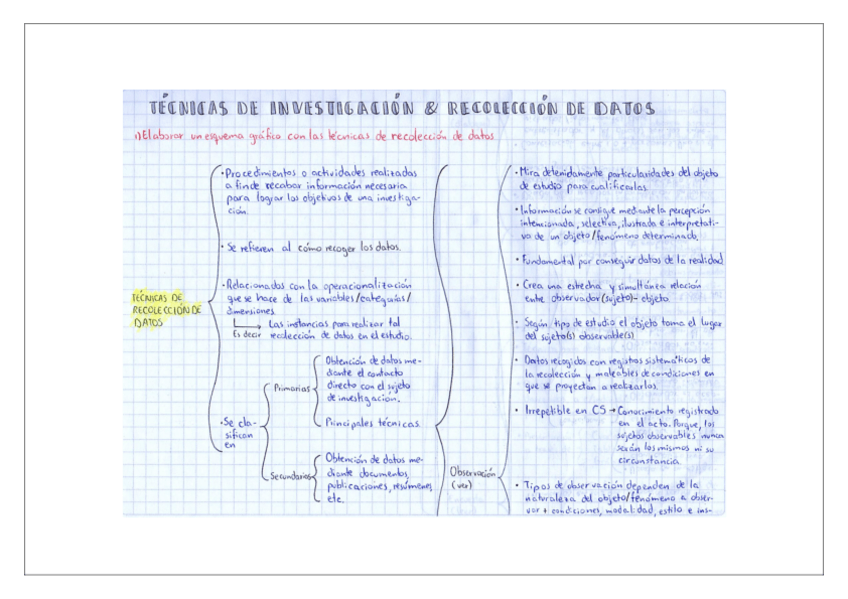 TÉCNICAS DE INVESTIGACIÓN & RECOLECCIÓN DE DATOS
1) Elaborar un esquema gráfico con las técnicas de recolección de datos
TÉCNICAS DE
RECOLECCIÓN DE
DATOS
· Procedimientos o actividades realizadas
a fin de recabar información necesaria
para lograr los objetivos de una investiga-
ción.
· Se refieren al cómo recoger los datos.
· Relacionados con la operacionalización
que se hace de las variables/categorías/
dimensiones.
Es decir → Las instancias para realizar tal
recolección de datos en el estudio.
· Se cla-
sifican
en
Primarias
Obtención de datos me-
diante el contacto
directo con el sujeto
de investigación.
Principales técnicas.
Secundarias
Obtención de datos me-
diante documentos,
publicaciones, resúmenes
etc.
Observación
(ver)
· Mira detenidamente particularidades del objeto
de estudio para cualificarlas.
· Información se consigue mediante la percepción
intencionada, selectiva, ilustrada e interpretati-
va de un objeto/fenómeno determinado.
· Fundamental por conseguir datos de la realidad
· Crea una estrecha y simultánea relación
entre observador (sujeto) - objeto.
· Según tipo de estudio el objeto toma el lugar
del sujeto(s) observable(s)
· Datos recogidos con registros sistemáticos de
la recolección y maleables de condiciones en
que se proyectan a realizarlos.
· Irrepetible en CS → Conocimiento registrado
en el acto. Porque, los
sujetos observables nunca
serán los mismos ni su
circunstancia.
· Tipos de observación dependen de la
naturaleza del objeto/fenómeno a obser-
var + condiciones, modalidad, estilo e ins-